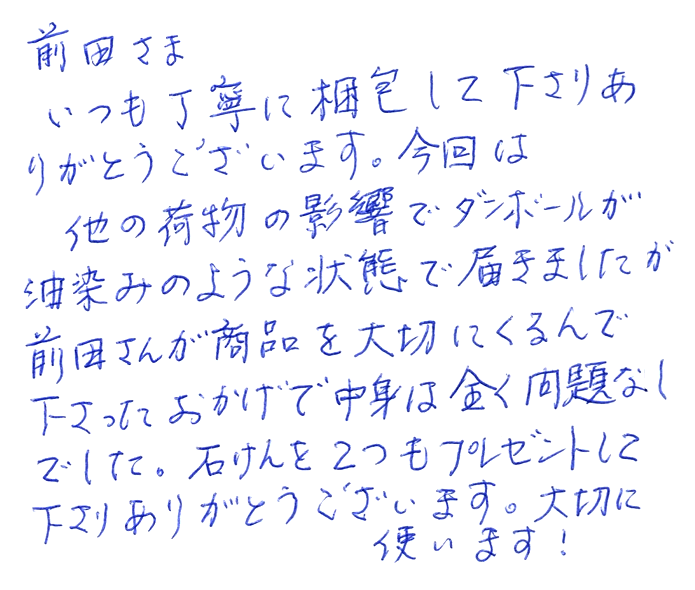 前田さま
いつも丁寧に梱包して下さりあ
りがとうございます。今回は
他の荷物の影響でダンボールが
油染みのような状態で届きましたが
前田さんが商品を大切にくるんで
下さったおかげで中身は全く問題なし
でした。石けんを2つもプレゼントして
下さりありがとうございます。大切に
使います！